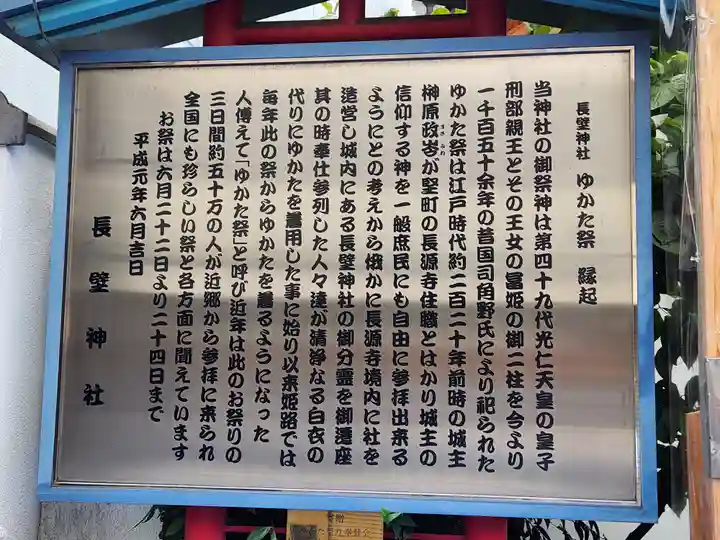 長壁神社 ゆかた祭 縁起
当神社の御祭神は第四十九代光仁天皇の皇子
刑部親王とその王女の冨姫の御二柱を今より
一千百五十余年の昔国司角野氏により祀られた
ゆかた祭は江戸時代約二百二十年前時の城主
榊原政岑が竪町の長源寺住職とはかり城主の
信仰する神を一般庶民にも自由に参拝出来る
ようにとの考えから俄かに長源寺境内に社を
造営し城内にある長壁神社の御分霊を御遷座
其の時奉仕参列した人々達が清浄なる白衣の
代りにゆかたを着用した事に始り以来姫路では
毎年此の祭からゆかたを着るようになった
人傳えて「ゆかた祭」と呼び近年は此のお祭りの
三日間約五十万の人が近郷から参拝に来られ
全国にも珍らしい祭と各方面に聞えています
お祭は六月二十二日より二十四日まで
平成元年六月吉日
長壁神社